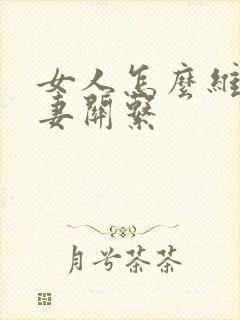 女人怎麼維
妻關繫
月兮茶茶